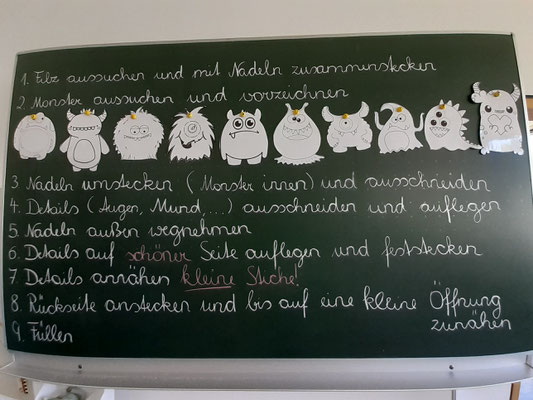 1. Filz aussuchen und mit Nadeln zusammenstecken
2. Monster aussuchen und vorzeichnen
3. Nadeln umstecken (Monster innen) und ausschneiden
4. Details (Augen, Mund, ...) ausschneiden und auflegen
5. Nadeln außen wegnehmen
6. Details auf schöner Seite auflegen und feststecken
7. Details annähen kleine Stiche!
8. Rückseite anstecken und bis auf eine kleine Öffnung
zunähen
9. Füllen